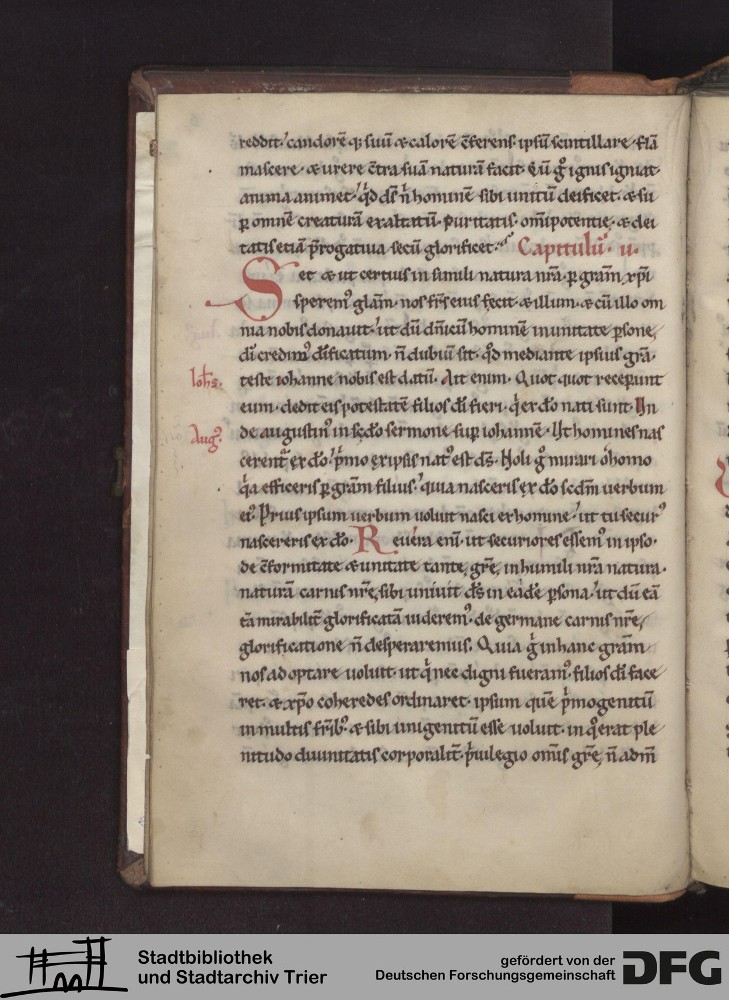 reddit.' candorē q; suū & calorē cferens. ipsū scintillare flā
mascere. & urere ctra suā naturā facit. Cū gͦ ignis ignitat.
anima animet.' qͥd ds̄ n̄ hominē sibi unitū deificet. & su
ꝑ omnē creaturā exaltatū. puritatis. om̄ipotentie. & dei
tatis etiā p̄rogatiua secū glorificet. Capitulū. ii.
Set & ut certius in simili natura nr̄a. ꝑ grām xp̄i
speremꝰ glām. nos frs̄ eius fecit. & illum. & cū illo om
nia nobis donauit.' ut dū dn̄icū hominē in unitate psone,
di credimꝰ dificatum. n̄ dubiū sit. qd̄ mediante ipsius grā.
Ioh̄s.
teste iohanne nobis est datū. Ait enim. Quot quot recepunt
eum. dedit eis potestatē filios di fieri. q̇ ex do nati sunt. Un
Augꝰ.
de augustinꝰ in scdo sermone sup iohannē. Ut homines nas
cerent̄ ex do.' pͥmo ex ipsis natꝰ est ds̄. Noli gͦ mirari o homo
qͥa efficeris ꝑ grām filius.' quia nasceris ex do scdm uerbum
eiꝰ. Prius ipsum uerbum uoluit nasci ex homine.' ut tu securꝰ
nascereris ex do. Reuera eni. ut securiores essemꝰ in ipso.
de cformitate & unitate tante, gr̄e, in humili nr̄a natura.
naturā carnis nr̄e, sibi uniuit ds̄ in eadē psona.' ut dū eā
tā mirabilit̄ glorificatā uideremꝰ. de germane carnis nr̄e,
glorificatione n̄ desperaremus. Quia gͦ in hanc grām
nos adoptare uoluit. ut qͥ nec digni fueramꝰ. filios di face
ret. & xp̄o coheredes ordinaret. ipsum quē pͥmogenitū
in multis fribꝰ. & sibi unigenitū esse uoluit. in qͦ erat ple
nitudo diuinitatis corporalit̄. pͥuilegio om̄is gr̄e, n̄ adm̄
Stadtbibliothek
und Stadtarchiv Trier
gefördert von der
Deutschen Forschungsgemeinschaft
DFG